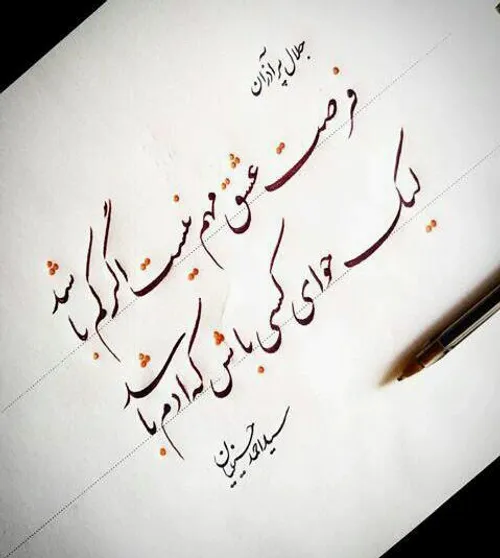 جلال پرآذران
فرصت عشق مهم نیست اگر کم باشد
لیک حوای کسی باش که ادم باشد
سیداحمد حسینیان